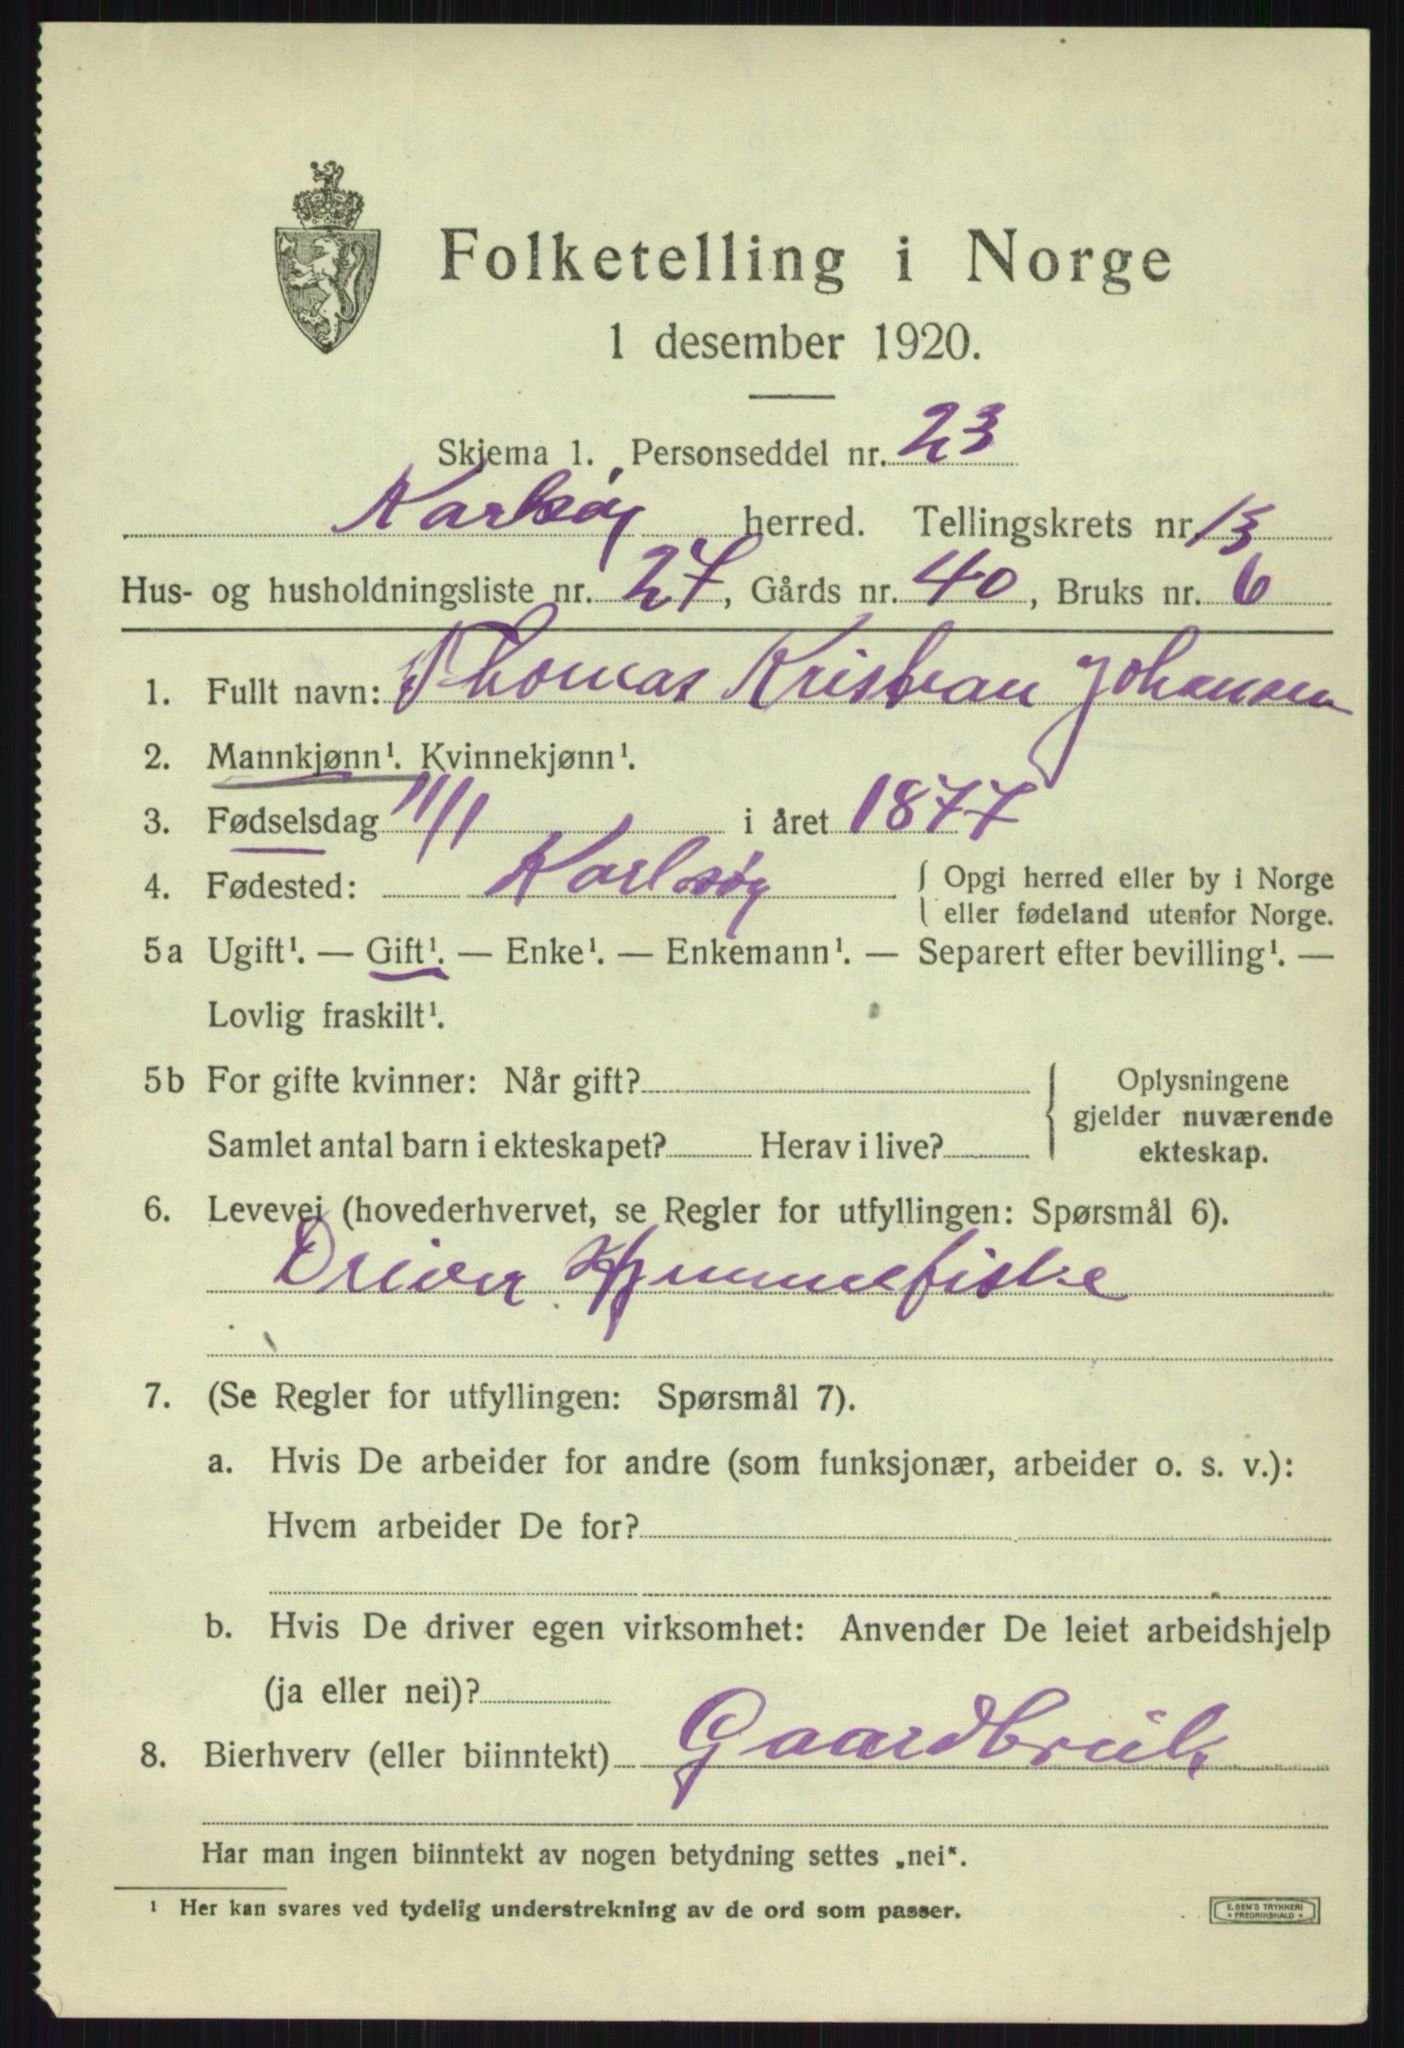 Folketelling i Norge
1 desember 1920.
Skjema 1. Personseddel nr. 23
Karlsøy herred. Tellingskrets nr. 13
Hus- og husholdningsliste nr. 27, Gårds nr. 40, Bruks nr. 6
1. Fullt navn: Thomas Kristian Johansen
2. Mannkjønn¹. Kvinnekjønn¹.
3. Fødselsdag 11/1 i året 1877
4. Fødested: Karlsøy { Opgi herred eller by i Norge
eller fødeland utenfor Norge.
5a Ugift¹. — Gift¹. — Enke¹. — Enkemann¹. — Separert efter bevilling¹. —
Lovlig fraskilt¹.
5b For gifte kvinner: Når gift?
Samlet antal barn i ekteskapet? Herav i live?
{ Oplysningene
gjelder nuværende
ekteskap.
6. Levevei (hovederhvervet, se Regler for utfyllingen: Spørsmål 6).
Driver Hjemmefiske
7. (Se Regler for utfyllingen: Spørsmål 7).
a. Hvis De arbeider for andre (som funksjonær, arbeider o. s. v.):
Hvem arbeider De for?
b. Hvis De driver egen virksomhet: Anvender De leiet arbeidshjelp
(ja eller nei)?
8. Bierhverv (eller biinntekt) Gaardbruk
Har man ingen biinntekt av nogen betydning settes „nei“.
¹ Her kan svares ved tydelig understrekning av de ord som passer.
E. SEM'S TRYKKERI
FREDRIKSHALD